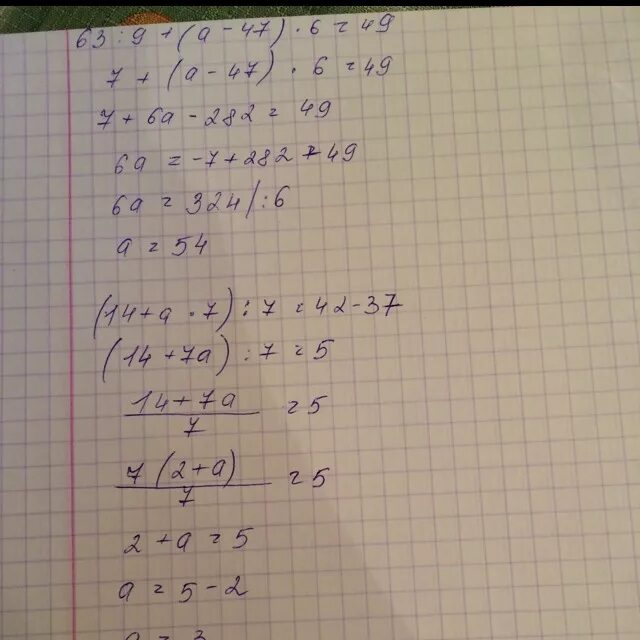 63 : 9 + (a - 47) · 6 = 49
7 + (a - 47) · 6 = 49
7 + 6a - 282 = 49
6a = -7 + 282 + 49
6a = 324 / : 6
a = 54
(14 + a · 7) : 7 = 42 - 37
(14 + 7a) : 7 = 5
14 + 7a / 7 = 5
7 (2 + a) / 7 = 5
2 + a = 5
a = 5 - 2
a = 3